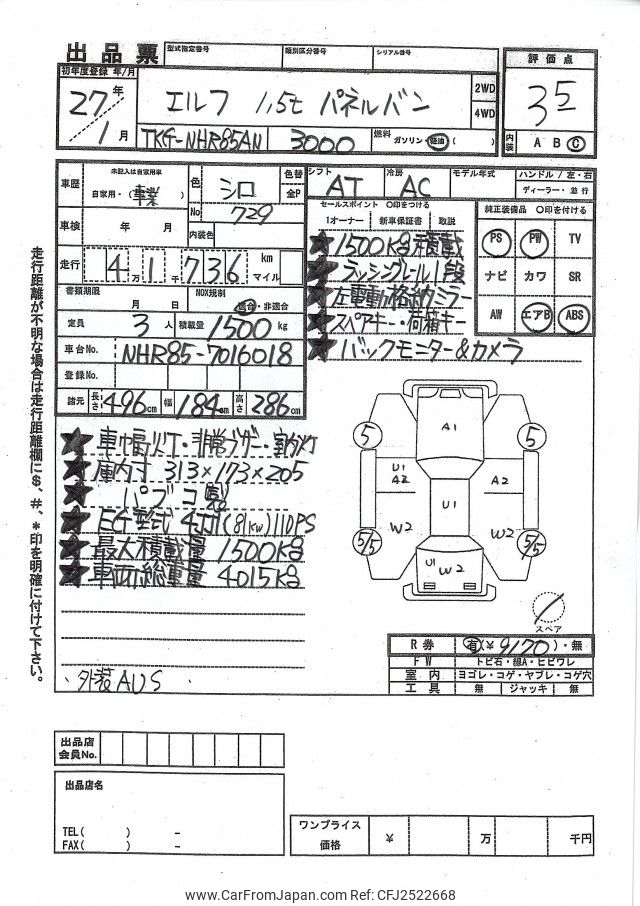 出品票 型式指定番号 類別区分番号 シリアル番号
初年度登録 年/月 評価点
27年 エルフ 1.5t パネルバン 2WD 35
1月 4WD
TKG-NHR85AN 3000 燃料 ガソリン・軽油( ) 内装 A B C
車歴 未記入は自家用車 色 シロ 色替 シフト 冷房 モデル年式 ハンドル/左・右
自家用・(事業) 全P AT AC ディーラー・並行
No. 729 セールスポイント ○印をつける 純正装備品 ○印を付ける
車検 年 月 内装色 1オーナー 新車保証書 取説
PS PW TV
走行 4万1千736 km マイル ★1500Kg積載
★ラッシングレール1段 ナビ カワ SR
書類期限 月 日 NOX規制 適合・非適合 ★左電動格納ミラー
定員 3人 積載量 1500kg ★スペアキー・荷箱キー AW エアB ABS
車台No. NHR85-7016018 ★バックモニター&カメラ
登録No.
諸元 長さ 496cm 幅 184cm 高さ 286cm
A1
5 5
★車巾高火灯・非常ブザー・室内灯
★庫内寸 313×173×205 U1 A2 A2
★パブコ製 U1
★EG型式 4JJ1(81kw)110PS W2 W2
★最大積載量 1500Kg 5/5 5/5
★車両総重量 4015Kg U1 W2
スペア
R券 有(¥9170)・無
FW トビ石・線A・ヒビワレ
・外装AUS 室内 ヨゴレ・コゲ・ヤブレ・コゲ穴
工具 無 ジャッキ 無
走行距離が不明な場合は走行距離欄に$、#、*印を明確に付けて下さい。
出品店
会員No.
出品店名
TEL( ) -
FAX( ) -
ワンプライス
価格 ¥ 万 千円
www.CarFromJapan.com Ref: CFJ2522668